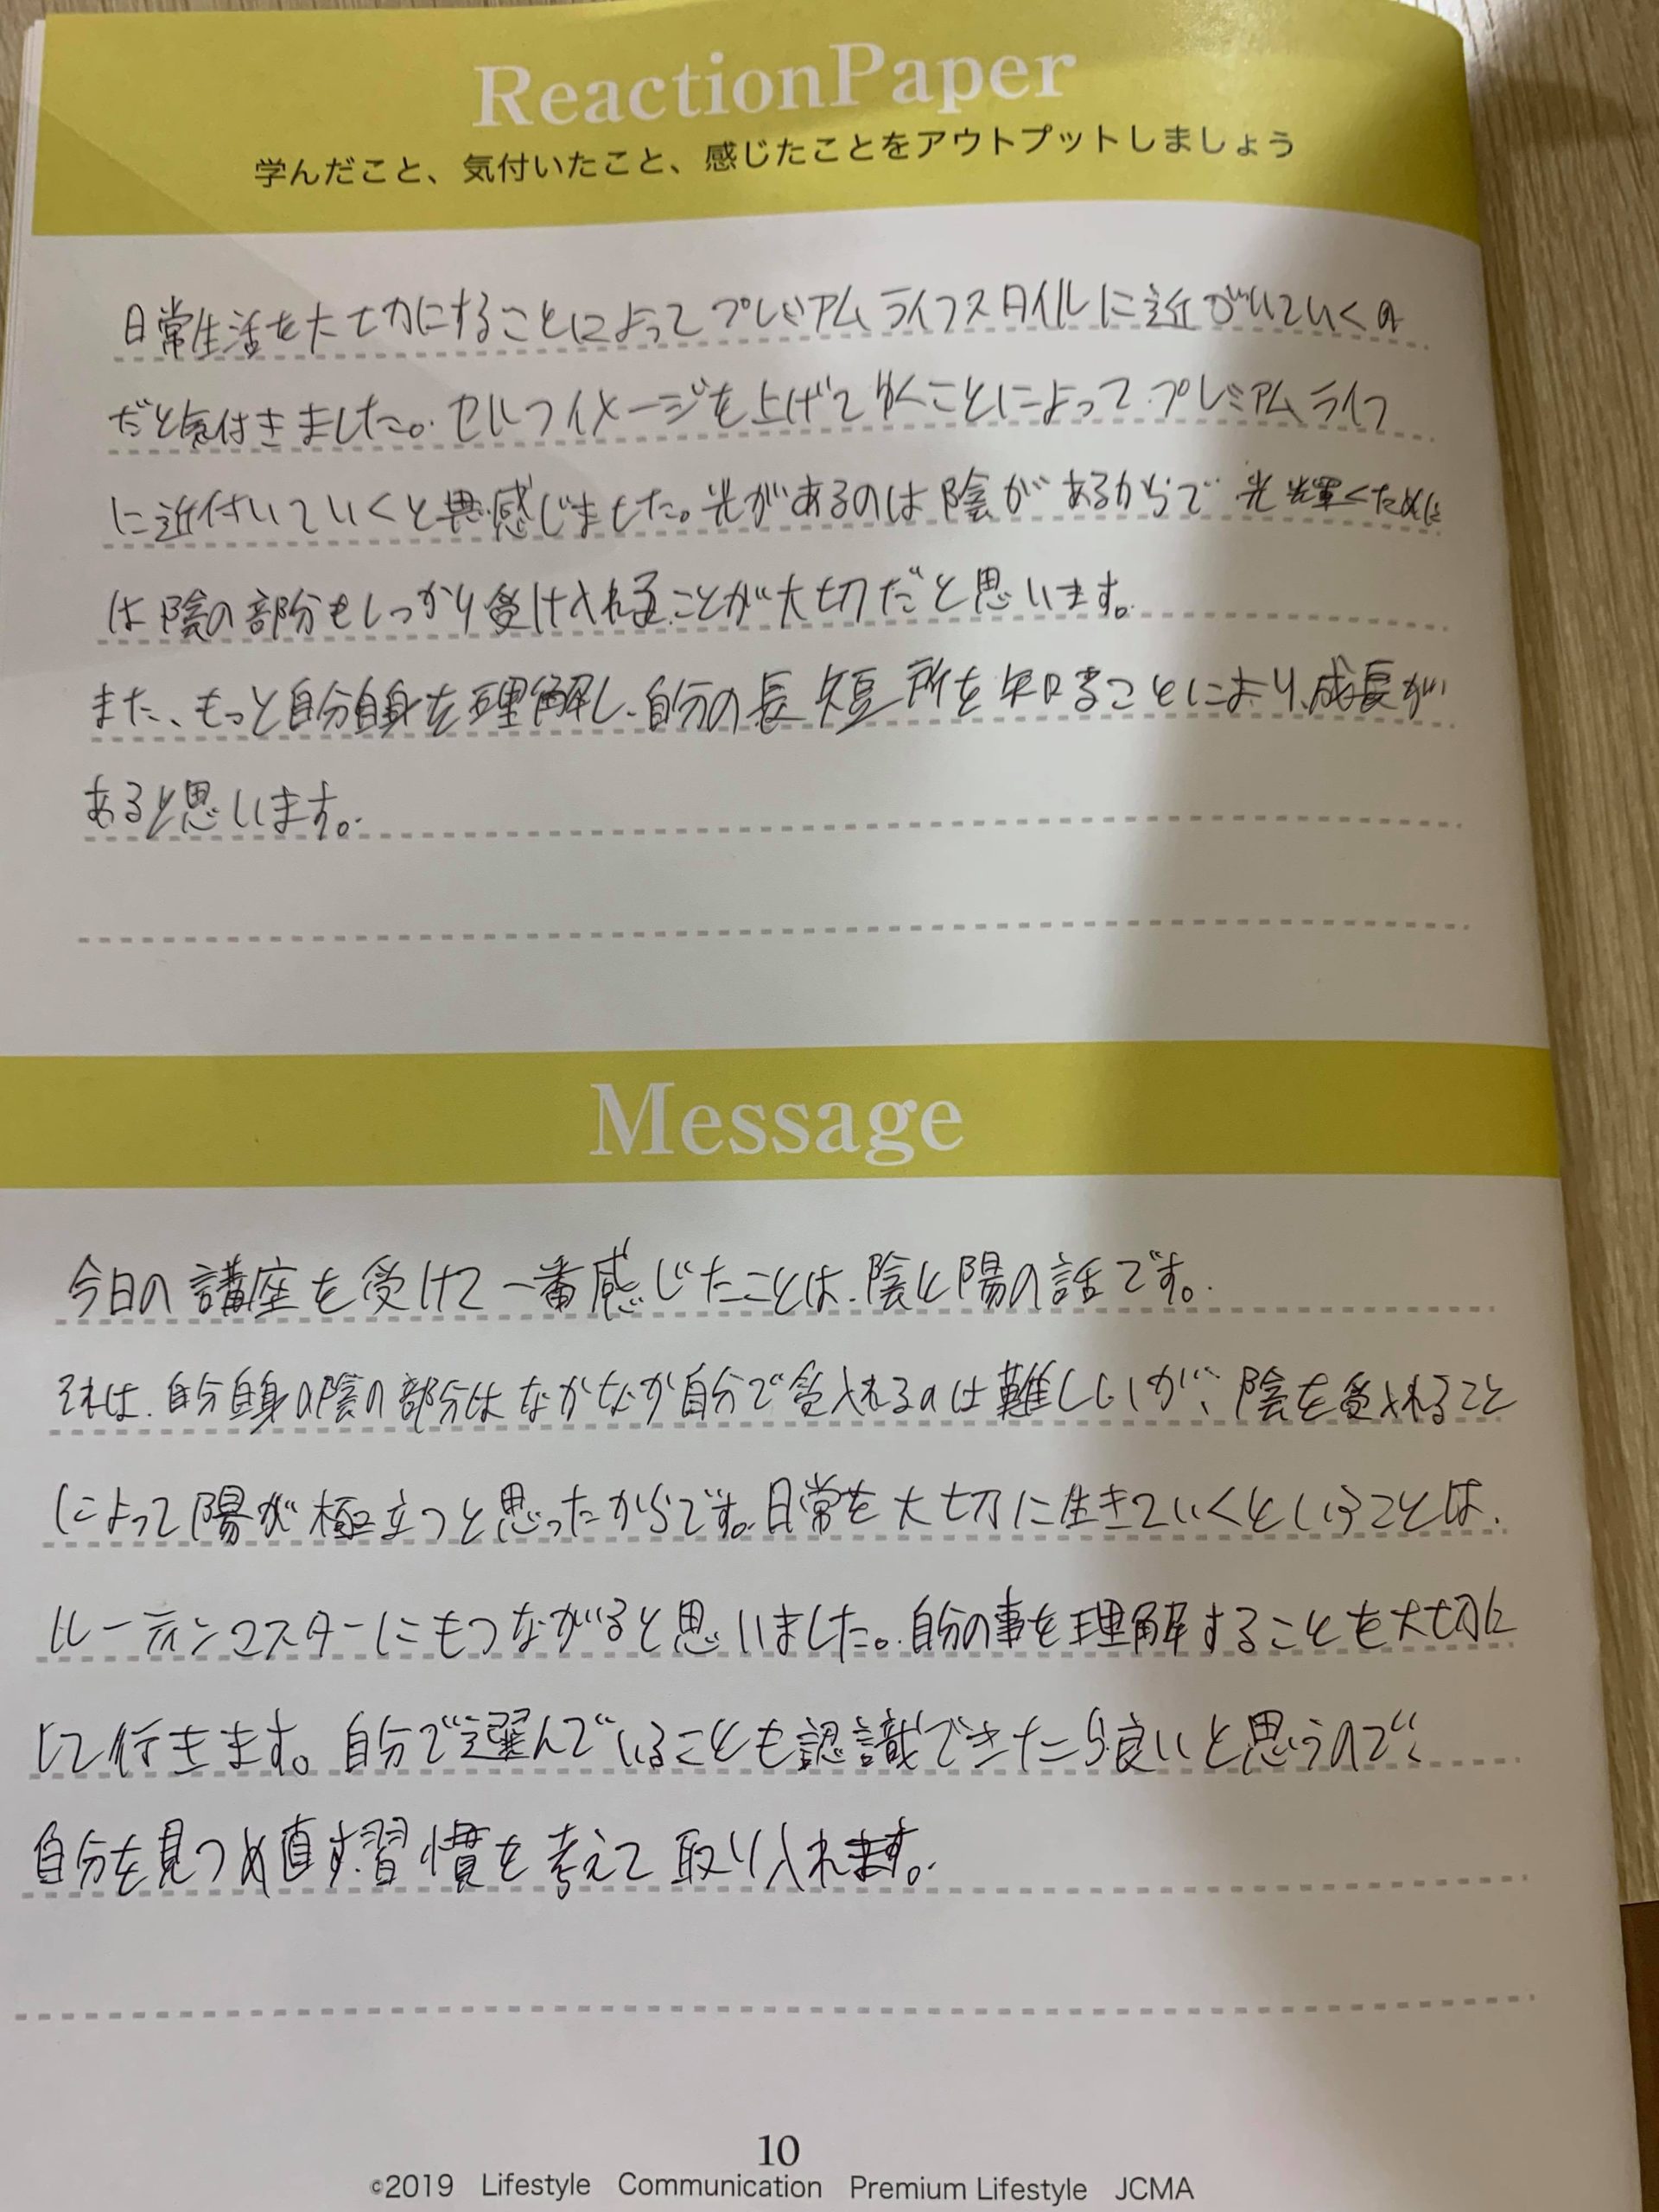 ReactionPaper
学んだこと、気付いたこと、感じたことをアウトプットしましょう
日常生活を大切にすることによってプレミアムライフスタイルに近がいていくの
だと気付きました。セルフイメージを上げてゆくことによってプレミアムライフ
に近付いていくと感じました。光があるのは陰があるからで光輝くために
は陰の部分もしっかり受け入れることが大切だと思います。
また、もっと自分自身を理解し、自分の長短所を知ることにより、成長が
あると思います。
Message
今日の講座を受けて一番感じたことは、陰と陽の話です。
それは、自分自身の陰の部分はなかなか自分で受入れるのは難しいが、陰を受入れること
によって陽が極立つと思ったからです。日常を大切に生きていくということは、
ルーティンマスターにもつながると思いました。自分の事を理解することを大切に
して行きます。自分で選んでいることも認識できたら良いと思うので、
自分を見つめ直す習慣を考えて取り入れます。
10
©2019 Lifestyle Communication Premium Lifestyle JCMA